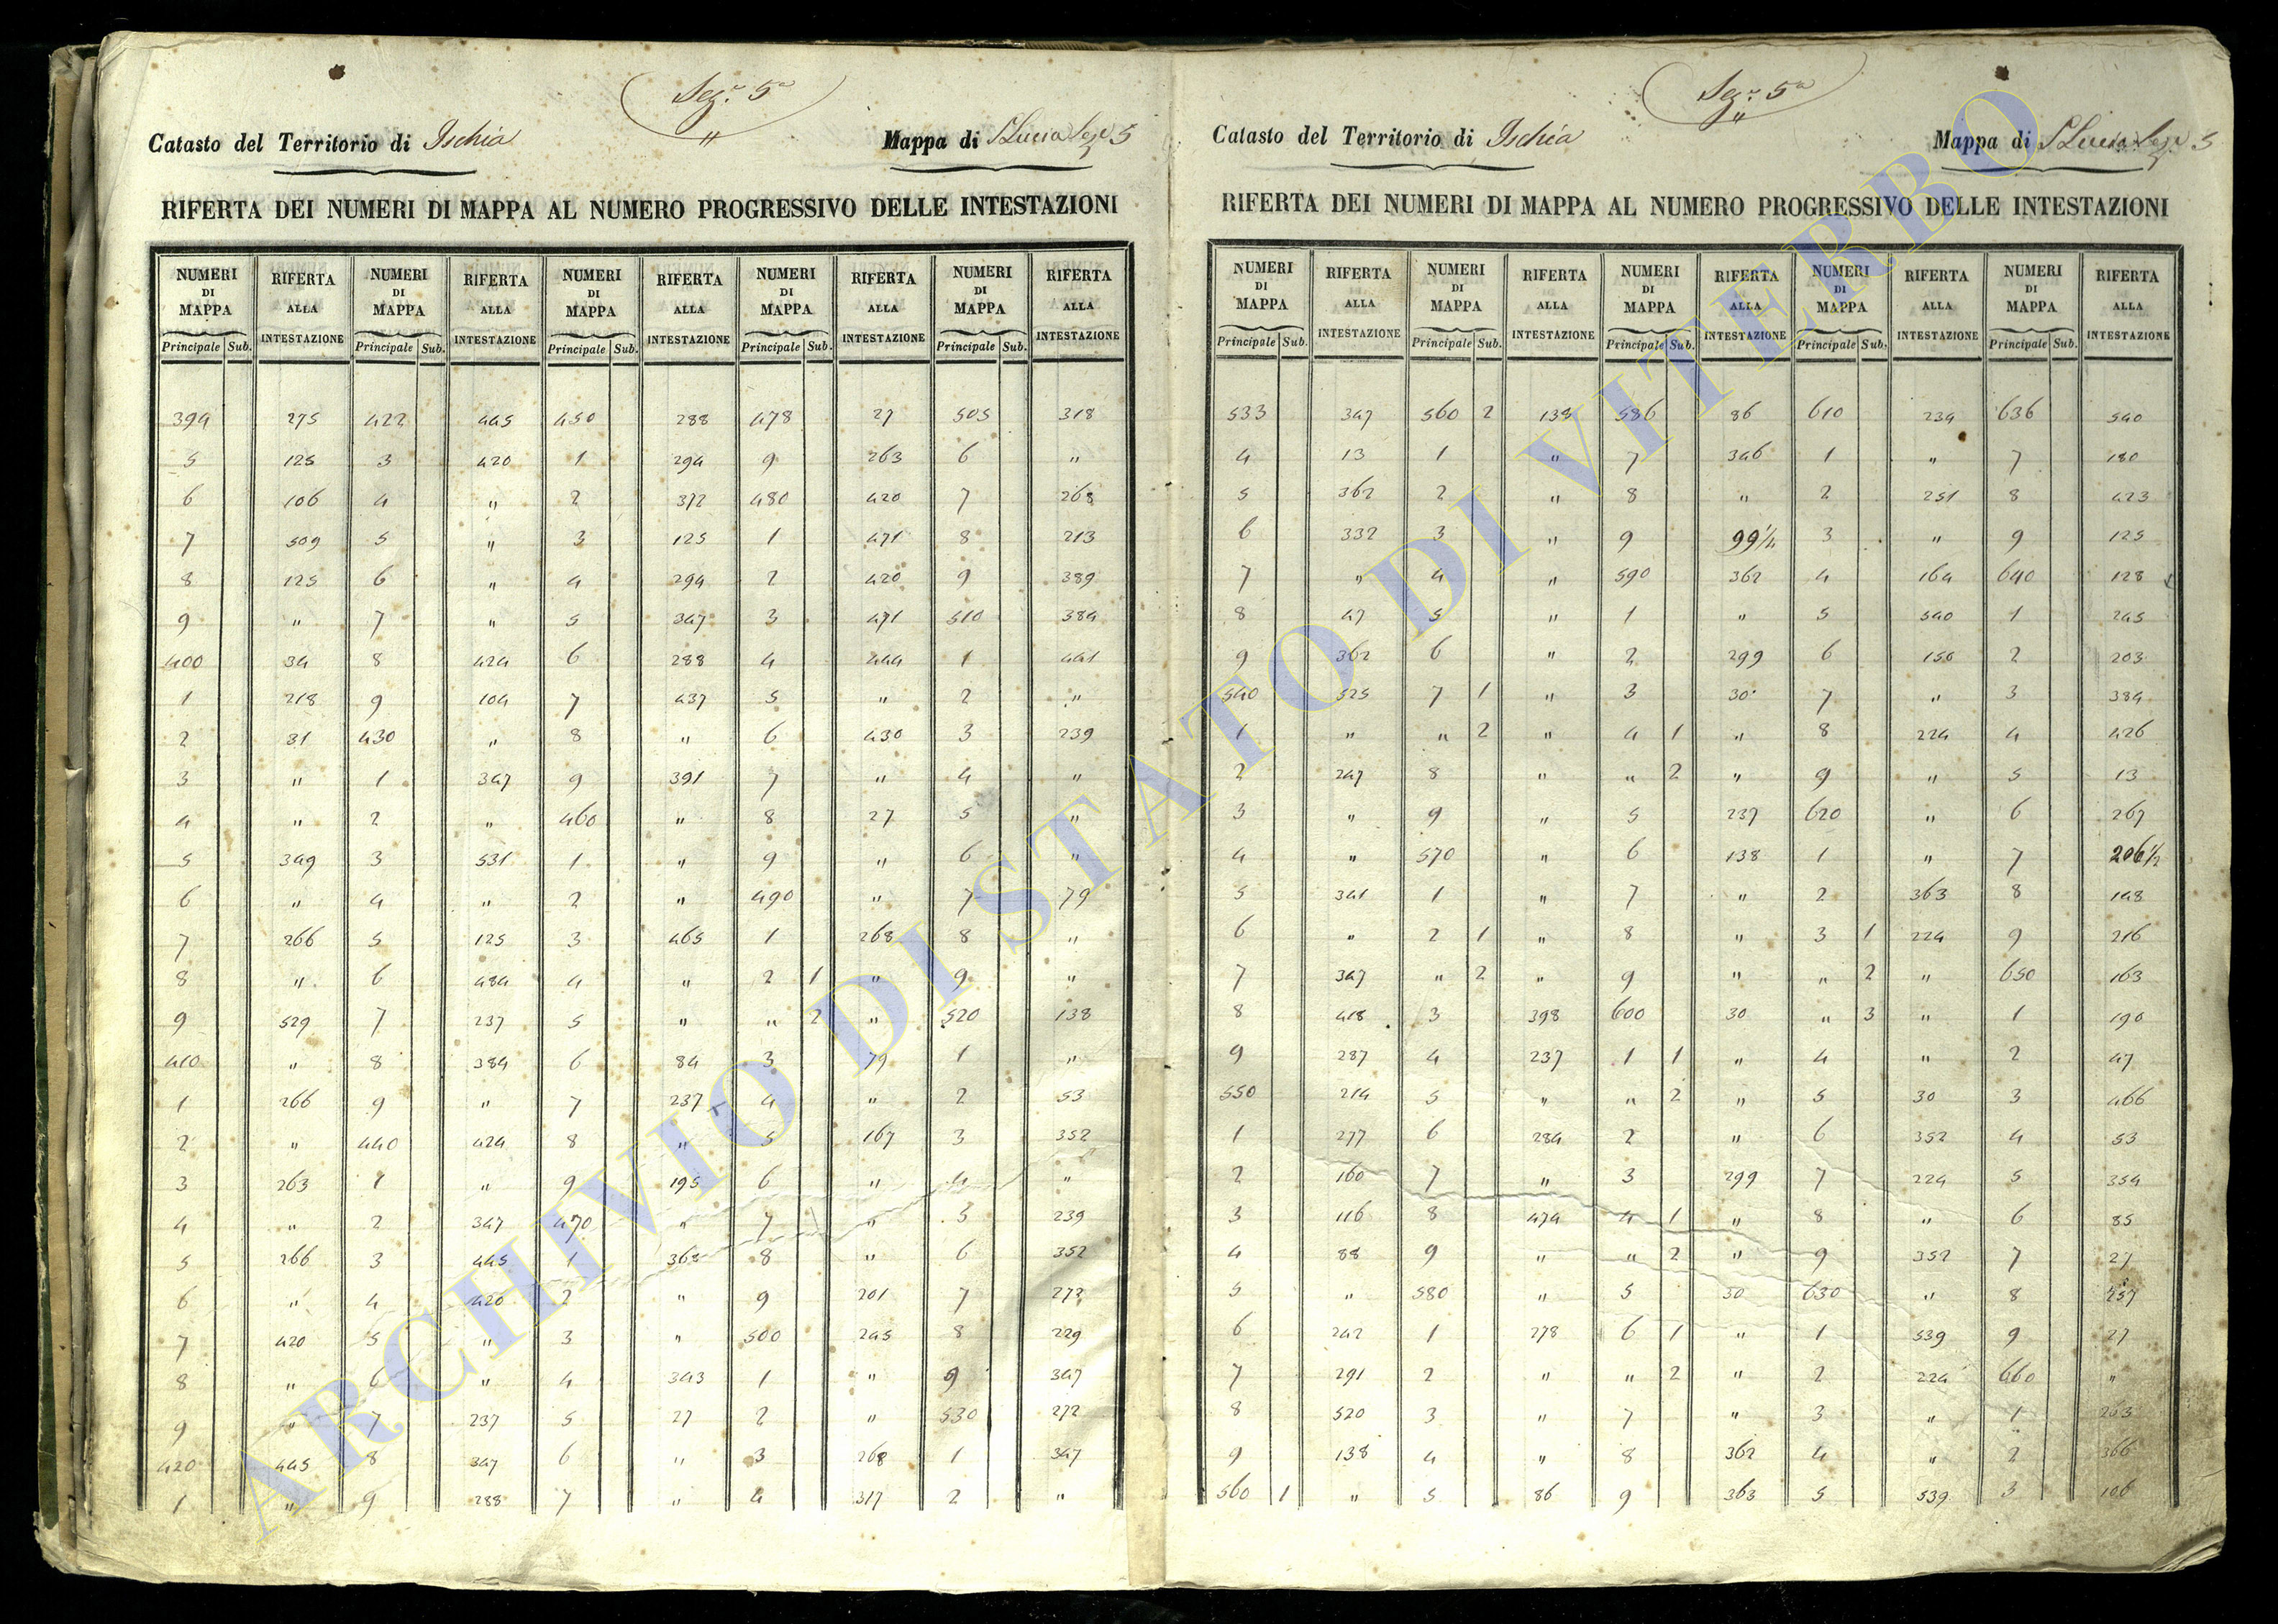 Seg.e 5a
"
Catasto del Territorio di Ischia
Mappa di S Lucia Seg.e 5
RIFERTA DEI NUMERI DI MAPPA AL NUMERO PROGRESSIVO DELLE INTESTAZIONI
NUMERI DI MAPPA RIFERTA ALLA INTESTAZIONE NUMERI DI MAPPA RIFERTA ALLA INTESTAZIONE NUMERI DI MAPPA RIFERTA ALLA INTESTAZIONE NUMERI DI MAPPA RIFERTA ALLA INTESTAZIONE NUMERI DI MAPPA RIFERTA ALLA INTESTAZIONE
Principale Sub. Principale Sub. Principale Sub. Principale Sub. Principale Sub.
394 275 422 445 450 288 478 27 505 318
5 125 3 420 1 294 9 263 6 "
6 106 4 " 2 372 480 420 7 268
7 509 5 " 3 125 1 471 8 213
8 125 6 " 4 294 2 420 9 389
9 " 7 " 5 347 3 471 510 384
400 34 8 424 6 288 4 444 1 441
1 218 9 104 7 437 5 " 2 "
2 31 430 " 8 " 6 430 3 239
3 " 1 347 9 391 7 " 4 "
4 " 2 " 460 " 8 27 5 "
5 349 3 531 1 " 9 " 6 "
6 " 4 " 2 " 490 " 7 79
7 266 5 125 3 465 1 268 8 "
8 " 6 484 4 " 2 1 " 9 "
9 529 7 237 5 " " 2 " 520 138
410 " 8 384 6 84 3 79 1 "
1 266 9 " 7 237 4 " 2 53
2 " 440 424 8 " 5 167 3 352
3 263 1 " 9 195 6 " 4 "
4 " 2 347 470 " 7 " 5 239
5 266 3 445 1 368 8 " 6 352
6 " 4 420 2 " 9 201 7 272
7 420 5 " 3 " 500 245 8 229
8 " 6 " 4 343 1 " 9 347
9 " 7 237 5 27 2 " 530 272
420 445 8 347 6 " 3 268 1 347
1 " 9 288 7 " 4 317 2 "
Seg.e 5a
"
Catasto del Territorio di Ischia
Mappa di S Lucia Seg.e 5
RIFERTA DEI NUMERI DI MAPPA AL NUMERO PROGRESSIVO DELLE INTESTAZIONI
NUMERI DI MAPPA RIFERTA ALLA INTESTAZIONE NUMERI DI MAPPA RIFERTA ALLA INTESTAZIONE NUMERI DI MAPPA RIFERTA ALLA INTESTAZIONE NUMERI DI MAPPA RIFERTA ALLA INTESTAZIONE NUMERI DI MAPPA RIFERTA ALLA INTESTAZIONE
Principale Sub. Principale Sub. Principale Sub. Principale Sub. Principale Sub.
533 347 560 2 138 586 86 610 234 636 540
4 13 1 " 7 346 1 " 7 180
5 362 2 " 8 " 2 251 8 423
6 332 3 " 9 99 1/4 3 " 9 125
7 " 4 " 590 362 4 164 640 128
8 47 5 " 1 " 5 540 1 245
9 362 6 " 2 299 6 150 2 203
540 525 7 1 " 3 30 7 " 3 384
1 " " 2 " 4 1 " 8 224 4 426
2 247 8 " " 2 " 9 " 5 13
3 " 9 " 5 237 620 " 6 267
4 " 570 " 6 138 1 " 7 206 1/2
5 341 1 " 7 " 2 363 8 148
6 " 2 1 " 8 " 3 1 224 9 216
7 347 " 2 " 9 " " 2 " 650 163
8 418 3 398 600 30 " 3 " 1 190
9 287 4 237 1 1 " 4 " 2 47
550 214 5 " " 2 " 5 30 3 466
1 277 6 284 2 " 6 352 4 53
2 160 7 " 3 299 7 224 5 354
3 116 8 474 4 1 " 8 " 6 85
4 88 9 " " 2 " 9 352 7 27
5 " 580 " 5 30 630 " 8 257
6 242 1 278 6 1 " 1 539 9 27
7 291 2 " " 2 " 2 224 660 "
8 520 3 " 7 " 3 " 1 263
9 138 4 " 8 362 4 " 2 366
560 1 " 5 86 9 363 5 539 3 106
ARCHIVIO DI STATO DI VITERBO